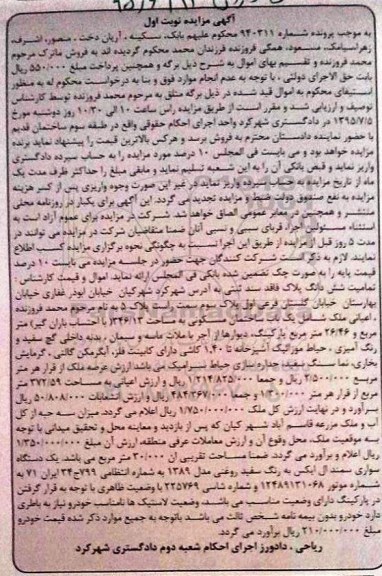 آگهی مزایده نوبت اول
به موجب پرونده شماره ۹۴۰۳۱۱ محکوم علیهم بابک، سکینه، آریان دخت، منصور، اشرف،
زهرا، سیامک، مسعود، همگی فروزنده فرزندان محمد محکوم گردیده اند به فروش ماترک مرحوم
محمد فروزنده و تقسیم بهای اموال به شرح ذیل برگه و همچنین پرداخت مبلغ ۵۵۰/۰۰۰ ریال
بابت حق الاجرای دولتی، با توجه به عدم انجام موارد فوق و بنا به درخواست محکوم له به منظور
استیفای محکوم به اموال قید شده در ذیل برگه متعلق به مرحوم محمد فروزنده توسط کارشناس
توصیف و ارزیابی شد و مقرر است از طریق مزایده راس ساعت ۱۰ الی ۱۰/۳۰ روز دوشنبه مورخ
۱۳۹۵/۷/۵ در دادگستری شهرکرد واحد اجرای احکام حقوقی واقع در طبقه سوم ساختمان قدیم
با حضور نماینده دادستان محترم به فروش برسد و هرکس بالاترین قیمت را پیشنهاد نماید برنده
مزایده خواهد بود و می بایست فی المجلس ۱۰ درصد مورد مزایده را به حساب سپرده دادگستری
واریز نماید و قبض بانکی آن را به این شعبه تسلیم نماید و مابقی مبلغ را حداکثر ظرف مدت یک
ماه از تاریخ مزایده به حساب سپرده واریز نماید در غیر این صورت وجوه واریزی پس از کسر هزینه
مزایده به نفع صندوق دولت ضبط و مزایده تجدید می گردد. این آگهی برای یکبار در روزنامه محلی
منتشر و همچنین در معابر عمومی الصاق خواهد شد. شرکت در مزایده برای عموم آزاد است به
استثناء مسئولین اجرا، اقربای سببی و نسبی آنان ضمنا متقاضیان شرکت در مزایده می توانند در
مدت ۵ روز قبل از مزایده از طریق این اجرا نسبت به چگونگی نحوه برگزاری مزایده کسب اطلاع
نمایند. لازم به ذکر است شرکت کنندگان جهت حضور در جلسه مزایده می بایست ۱۰ درصد
قیمت پایه را به صورت چک تضمین شده بانکی فی المجلس ارائه نماید. اموال و قیمت کارشناس:
تمامیت شش دانگ پلاک فاقد سند ثبتی به آدرس شهرکرد شهرکیان خیابان ابوذر غفاری خیابان
بهارستان خیابان گلستان فرعی اول پلاک سوم سمت راست پلاک ۵ به نام مرحوم محمد فروزنده
، اعیانی ملک شامل یک باب ساختمان مسکونی به مساحت ۱۳۴۶/۱۳ (با احتساب باران گیر) متر
مربع و ۲۶/۴۶ متر مربع پارکینگ، دیوارها از آجر با ملات ماسه و سیمان، بدنه داخلی گچ سفید و
رنگ آمیزی، حیاط موزائیک آشپزخانه تا ۱،۴۰ کاشی دارای کابینت فلز، آبگرمکن گازی، گرمایش
بخاری، نما سنگ جداره سازی حیاط سیرامیک می باشد ارزش عرصه ملک از قرار هر متر
مربع ۲/۵۰۰/۰۰۰ ریال و جمعا ۱/۲۱۴/۸۲۵/۰۰۰ ریال و ارزش اعیانی به مساحت ۳۷۲/۵۹ متر
مربع از قرار هر متر ۱/۳۰۰/۰۰۰ و جمعه ۴۸۴/۳۶۷/۰۰۰ ریال و ارزش انشعابات ۵۰/۸۰۸/۰۰۰ ریال
برآورد و در نهایت ارزش کل ملک ۱/۷۵۰/۰۰۰/۰۰۰ ریال اعلام می گردد. میزان سه حبه از کل
آب و ملک مزرعه قاسم آباد شهر کیان که پس از بازدید و معاینه محل و تحقیق میدانی با توجه
به موقعیت ملک، محل وقوع آن و ارزش معاملات عرفی منطقه، ارزش آن مبلغ ۱/۳۵۰/۰۰۰/۰۰۰
ریال اعلام و برآورد می گردد. ضمنا مساحت تقریبی آن ۳۰/۰۰۰ متر مربع می باشد. یک دستگاه
سواری سمند ال ایکس به رنگ سفید روغنی مدل ۱۳۸۹ به شماره انتظامی ۷۹۹ ح ۳۴ ایران ۷۱ به
شماره موتور ۱۲۴۸۹۱۳۱۰۶۸ و شماره شاسی ۲۲۵۷۶۹ با وضعیت ظاهری با توجه به قرار گرفتن
در پارکینگ دارای وضعیت مناسب می باشد، وضعیت لاستیک ها نامناسب خودرو نیاز به باطری
دارد خودرو بدون بیمه نامه شخص ثالث می باشد باتوجه به جمیع موارد ذکر شده قیمت خودرو
مبلغ ۲۱۰/۰۰۰/۰۰۰ ریال برآورد می گردد.
ریاحی - دادورز اجرای احکام شعبه دوم دادگستری شهرکرد